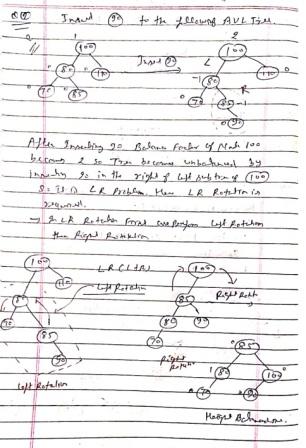 Insert 90 to the following AVL Tree.
1 2
100 100
Insert 90
0 80 110 0 L -1 80 110 0
70 85 R
0 70 85 -1
0 90
After Inserting 90 Balance Factor of Node 100
becomes 2 so Tree becomes unbalanced by
inserting 90 in the right of left subtree of 100
So it is LR Problem. Here LR Rotation is
required.
→ In LR Rotation First we perform Left Rotation
then Right Rotation.
100 LR (L+R) 100
80 110 Left Rotation 85 Right Rotn
70 85 80 90
90 70 Right Rotation
Left Rotation
85
1 80 100 0
0 70 90 0